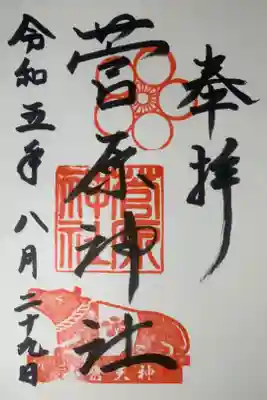 奉拝
菅原神社
令和五年八月二十九日
菅原神社